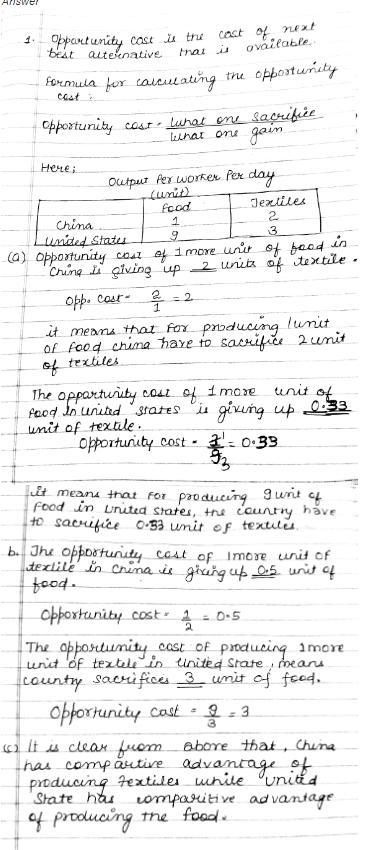 Answer
1. Opportunity cost is the cost of next
best alternative that is available.
Formula for calculating the opportunity
cost :
Opportunity cost = what one sacrifice
what one gain
Here;
Output Per worker Per day
(unit)
Food Textiles
China 1 2
United States 9 3
(a) Opportunity cost of 1 more unit of food in
China is giving up 2 units of textile.
Opp. cost = 2/1 = 2
it means that for producing 1 unit
of food china have to sacrifice 2 unit
of textiles
The opportunity cost of 1 more unit of
food in united states is giving up 0.33
unit of textile.
Opportunity cost = 3/9 = 0.33
it means that for producing 9 unit of
food in United States, the country have
to sacrifice 0.33 unit of textiles.
b. The opportunity cost of 1 more unit of
textile in China is giving up 0.5 unit of
food.
Opportunity cost = 1/2 = 0.5
The opportunity cost of producing 1 more
unit of textile in United State, means
country sacrifices 3 unit of food.
Opportunity cost = 9/3 = 3
(c) It is clear from above that, China
has compartive advantage of
producing textiles while United
State has comparitive advantage
of producing the food.